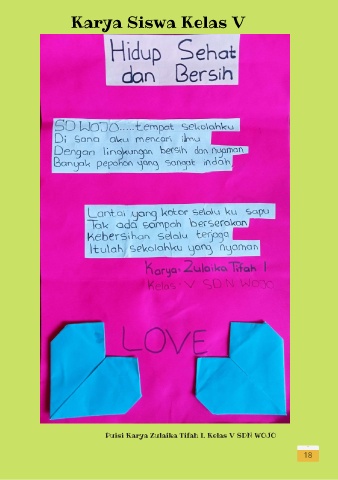 Karya Siswa Kelas V
Hidup Sehat
dan Bersih
SD WOJO.....tempat sekolahku
Di sana aku mencari ilmu
Dengan lingkungan bersih dan nyaman
Banyak pepohon yang sangat indah
Lantai yang kotor selalu ku sapu
Tak ada sampah berserakan
Kebersihan selalu terjaga
Itulah sekolahku yang nyaman
Karya: Zulaika Tifah I
Kelas V SDN WOJO
LOVE
Puisi Karya Zulaika Tifah I. Kelas V SDN WOJO
18